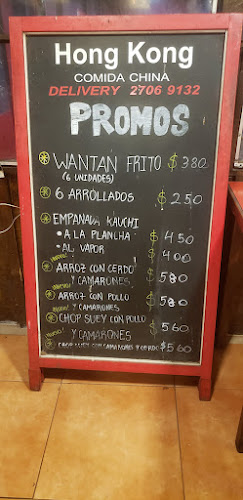 Hong Kong
COMIDA CHINA
DELIVERY 2706 9132
PROMOS
WANTAN FRITO $380
(6 UNIDADES)
6 ARROLLADOS $250
EMPANADA KAUCHI
• A LA PLANCHA $450
• AL VAPOR $400
ARROZ CON CERDO $580
Y CAMARONES
ARROZ CON POLLO $580
Y CAMARONES
CHOP SUEY CON POLLO $560
Y CAMARONES
CHOP SUEY CON CAMARONES Y CERDO $560